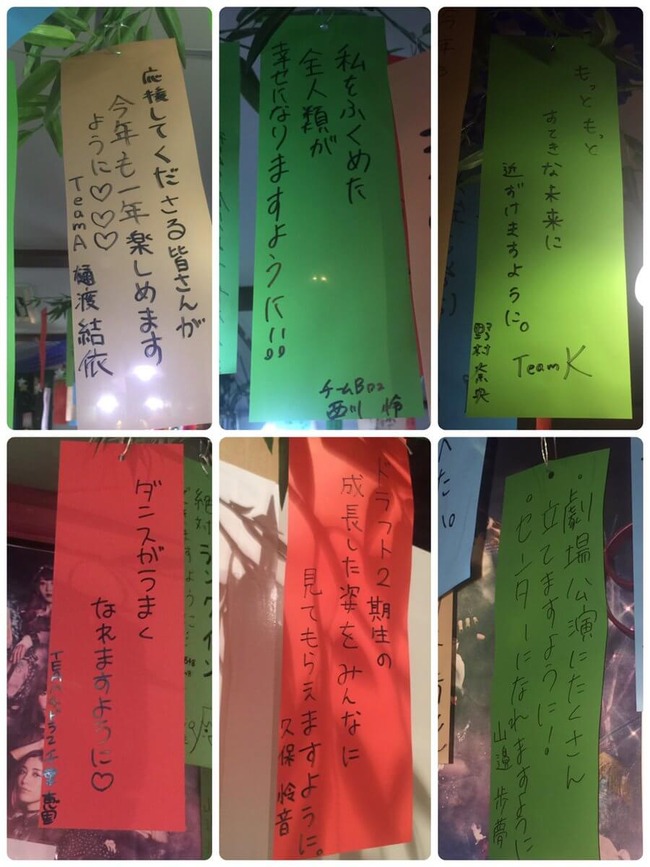 応援してくださる皆さんが
今年も一年楽しめます
ように♡♡♡
TeamA 樋渡結依
私をふくめた
全人類が
幸せになりますように!!
チームB
西川 怜
もっともっと
すてきな未来に
近づけますように。
野村奈央
TeamK
ダンスがうまく
なれますように♡
ドラフト2期生の
成長した姿をみんなに
見てもらえますように。
久保怜音
・劇場公演にたくさん
立てますように!
・センターになれますように
山邊歩夢